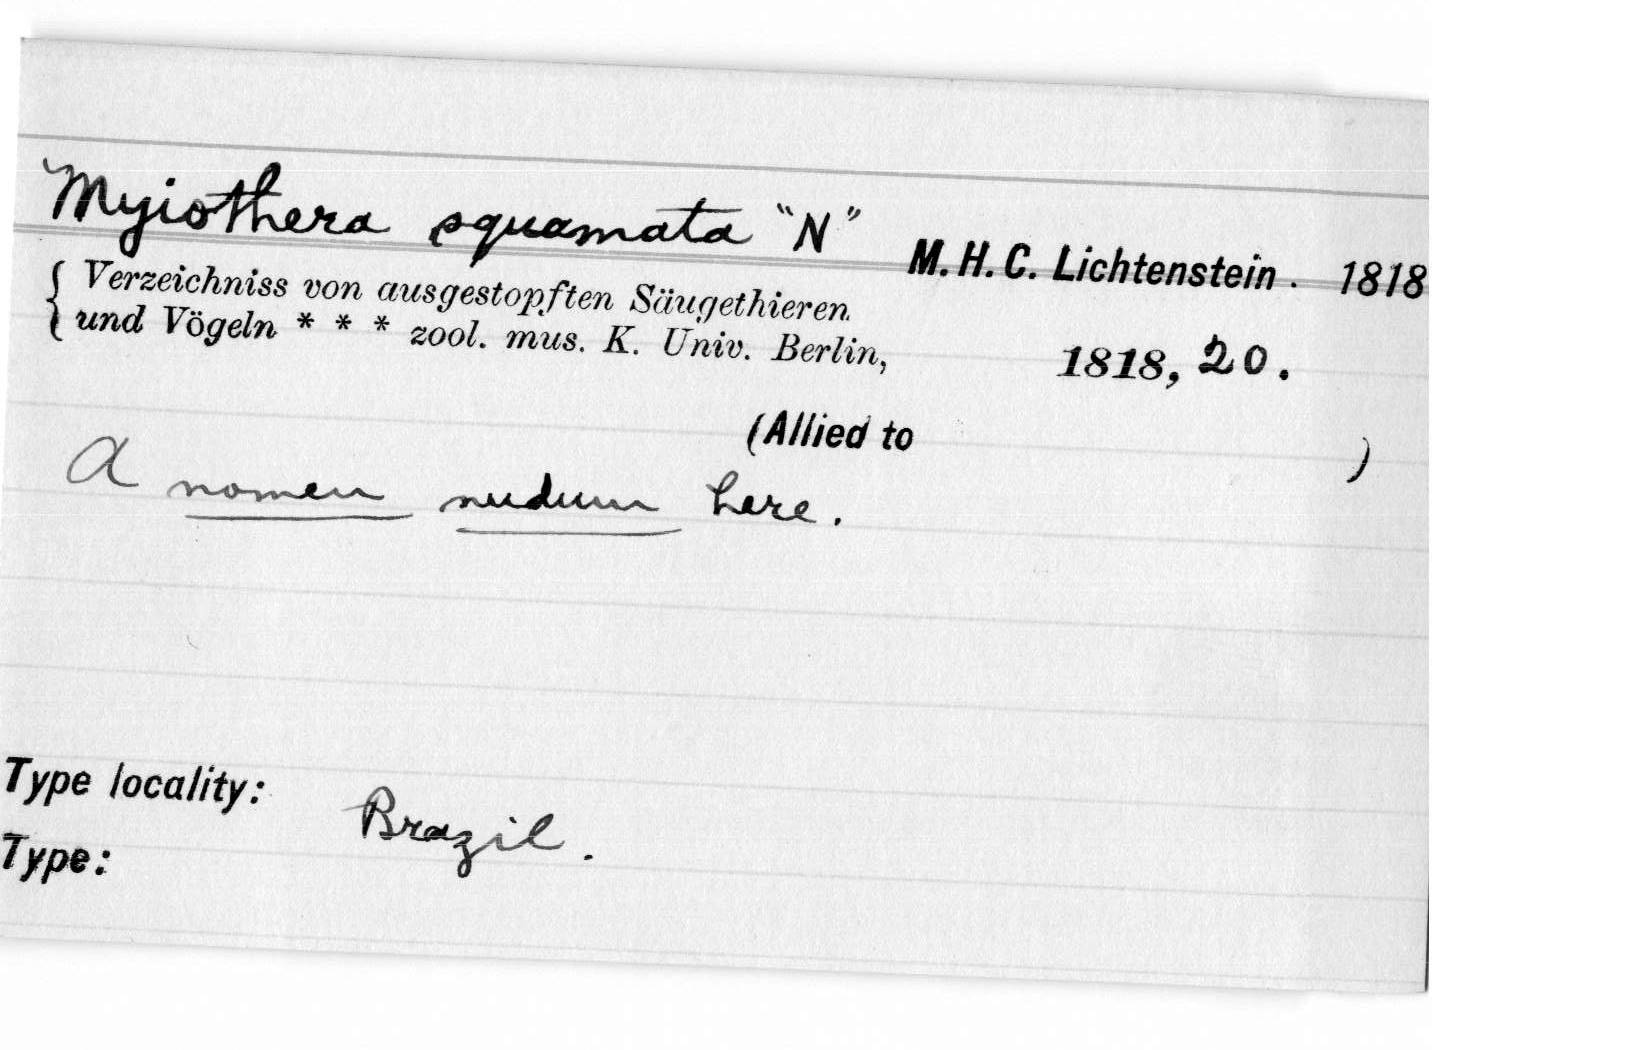 Myiothera squamata "N" M. H. C. Lichtenstein. 1818
{ Verzeichniss von ausgestopften Säugethieren
und Vögeln * * * zool. mus. K. Univ. Berlin, 1818, 20.
(Allied to )
A nomen nudum here.
Type locality: Brazil.
Type: